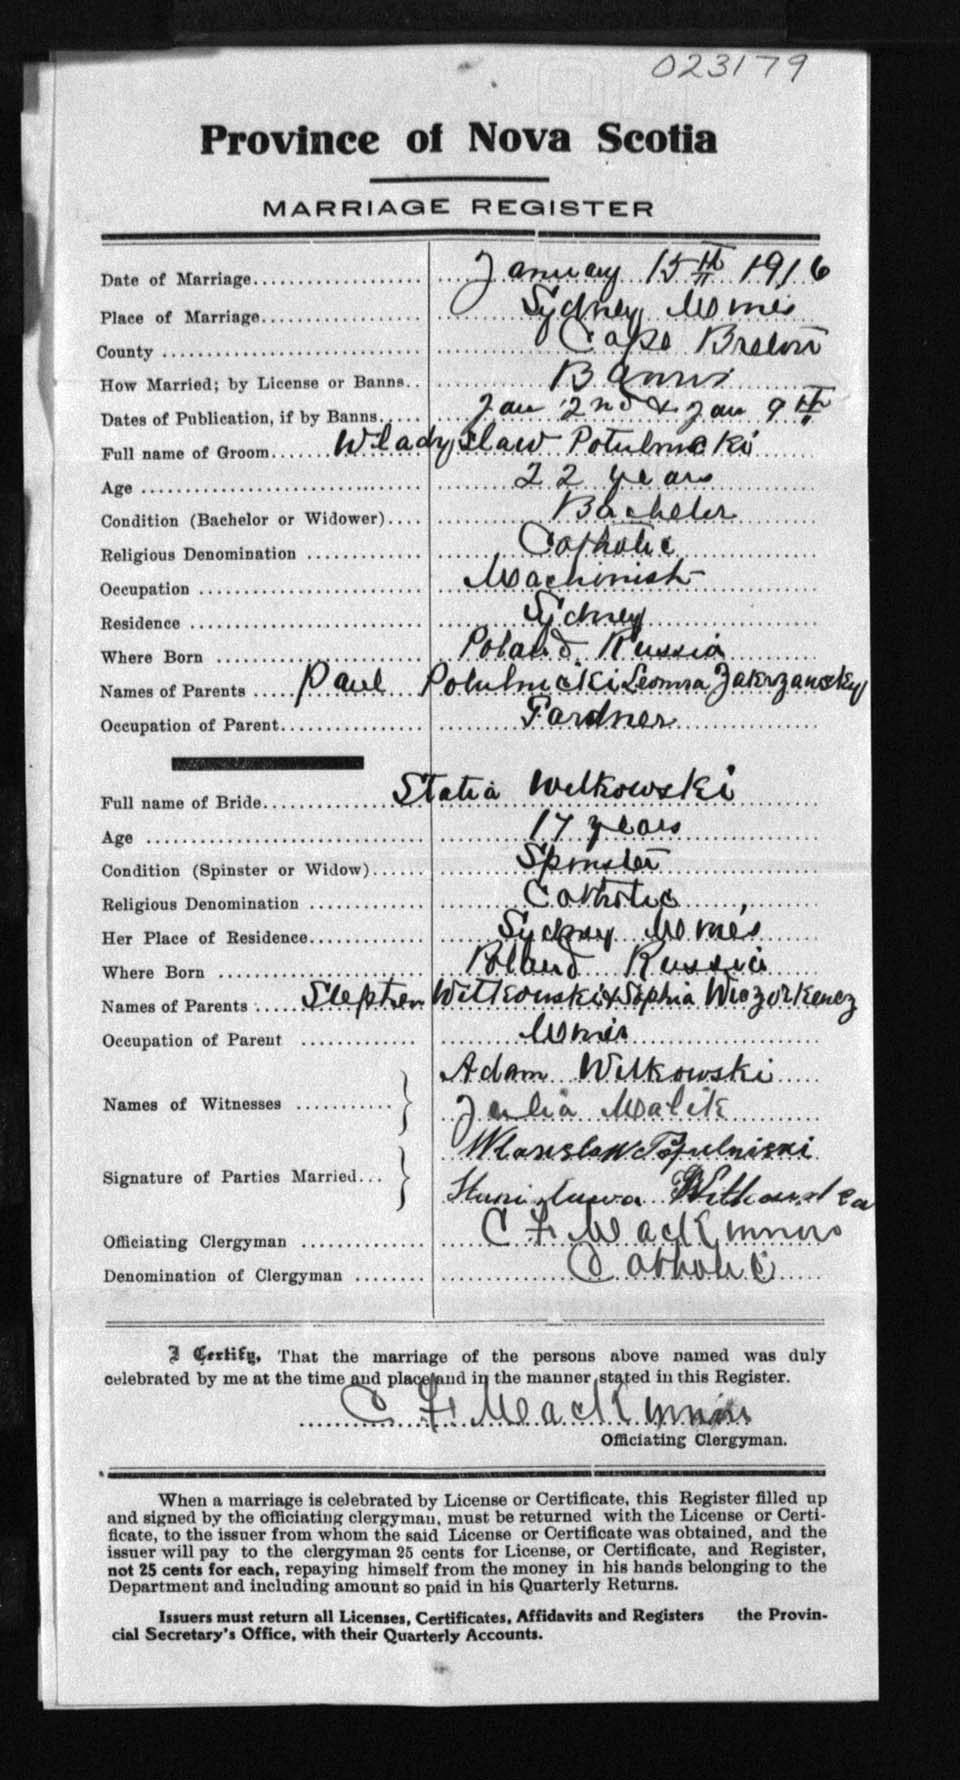 023179
Province of Nova Scotia
MARRIAGE REGISTER
Date of Marriage January 15th 1916
Place of Marriage Sydney Mines
County Cape Breton
How Married; by License or Banns Banns
Dates of Publication, if by Banns Jan 2nd & Jan 9th
Full name of Groom Wladyslaw Potulnicki
Age 22 years
Condition (Bachelor or Widower) Bachelor
Religious Denomination Catholic
Occupation Machinist
Residence Sydney
Where Born Poland Russia
Names of Parents Paul Potulnicki Leonora
Occupation of Parent Gardner
Full name of Bride Statia Witkowski
Age 17 years
Condition (Spinster or Widow) Spinster
Religious Denomination Catholic
Her Place of Residence Sydney Mines
Where Born Poland Russia
Names of Parents Stephen Witkowski & Sophia
Occupation of Parent Miner
Names of Witnesses Adam Witkowski
Julia Malik
Signature of Parties Married
Officiating Clergyman C F MacKinnon
Denomination of Clergyman Catholic
I Certify, That the marriage of the persons above named was duly
celebrated by me at the time and place and in the manner stated in this Register.
C F MacKinnon
Officiating Clergyman.
When a marriage is celebrated by License or Certificate, this Register filled up
and signed by the officiating clergyman, must be returned with the License or Certi-
ficate, to the issuer from whom the said License or Certificate was obtained, and the
issuer will pay to the clergyman 25 cents for License, or Certificate, and Register,
not 25 cents for each, repaying himself from the money in his hands belonging to the
Department and including amount so paid in his Quarterly Returns.
Issuers must return all Licenses, Certificates, Affidavits and Registers the Provin-
cial Secretary's Office, with their Quarterly Accounts.